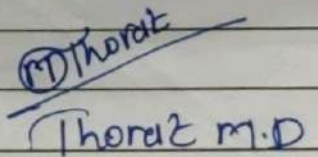 MDThorat
Thorat M.D